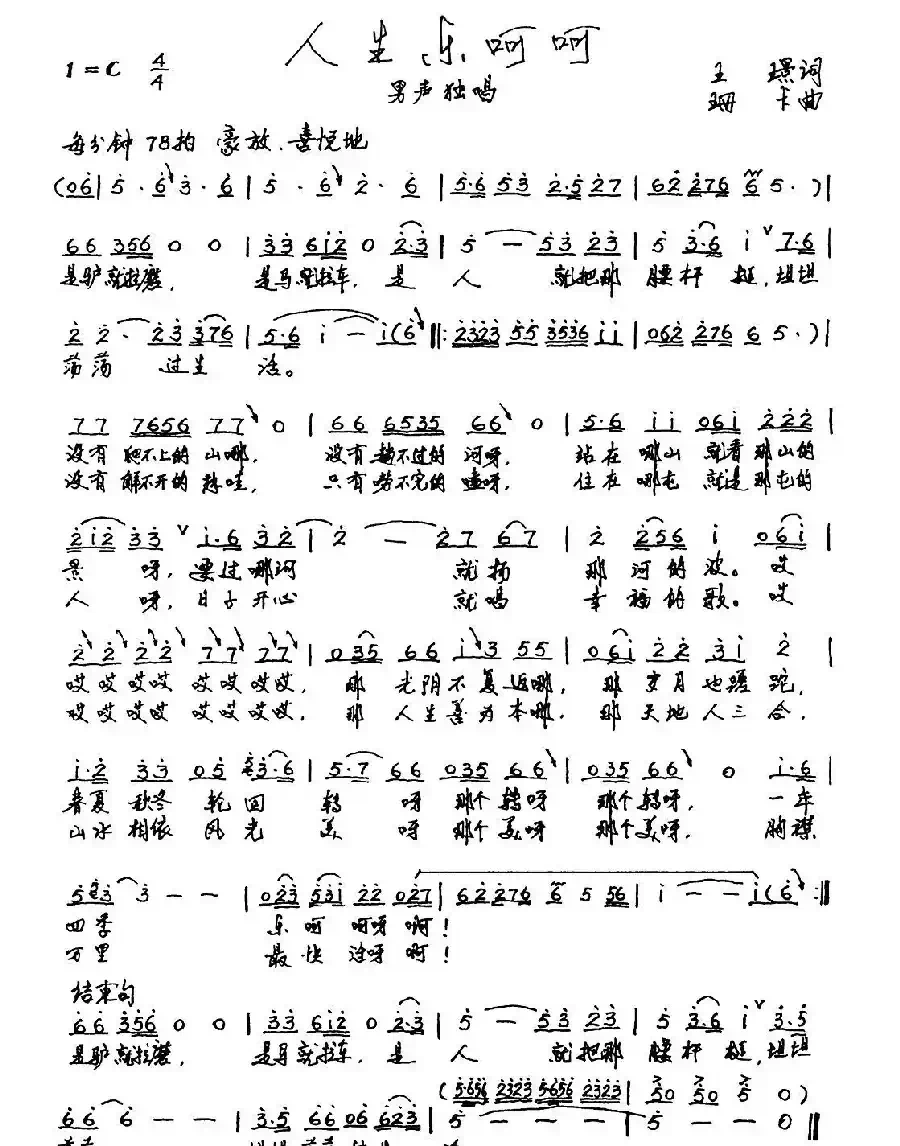 人生乐呵呵
1=C 4/4
男声独唱
王 璟词
珊 卡曲
每分钟 78拍 豪放、喜悦地
(06 | 5 · 6 3 · 6 | 5 · 6 2 · 6 | 5·6 53 2·5 27 | 62 276 6 5 · ) |
66 356 0 0 | 33 612 0 2·3 | 5 — 53 23 | 5 3·6 i 7·6 |
是驴就拉磨, 是马就拉车, 是 人 就把那 腰杆 挺,坦坦
2 2 · 23 376 | 5·6 i — i(6 ‖: 2323 55 3536 ii | 062 276 6 5 · ) |
荡荡 过生 活。
77 7656 77 0 | 66 6535 66 0 | 5·6 ii 06i 222 |
没有 爬不上的 山哪, 没有 趟不过的 河呀, 站在 哪山 就看 那山的
没有 解不开的 结哇, 只有 劳不完的 嗑呀, 住在 哪屯 就是 那屯的
2i2 33 i·6 32 | 2 — 27 67 | 2 256 i 06i |
景 呀, 要过 哪河 就扬 那 河的 波。 哎
人 呀, 日子 开心 就唱 幸 福的 歌。 哎
22 22 77 77 | 035 66 i3 55 | 06i 22 3i 2 |
哎哎 哎哎 哎哎 哎哎, 那 光阴 不复 返哪, 那 岁月 也蹉 跎,
哎哎 哎哎 哎哎 哎哎, 那 人生 善为 本哪, 那 天地 人三 合,
i·2 33 05 53·6 | 5·7 66 035 66 | 035 66 0 i·6 |
春夏 秋冬 轮 回 转 呀 那个 转呀 那个 转呀, 一年
山水 相依 风 光 美 呀 那个 美呀 那个 美呀, 胸襟
523 3 — — | 023 53i 22 027 | 62276 6 5 56 | i — — i(6 :‖
四季 乐 呵 呵呀 啊!
万里 最 快 活呀 啊!
结束句
66 356 0 0 | 33 612 0 2·3 | 5 — 53 23 | 5 3·6 i 3·5 |
是驴就拉磨, 是马就拉车, 是 人 就把那 腰杆 挺,坦坦
(5·656 2323 5·656 2323 | 50 50 5 0 )
66 6 — — | 3·5 66 06 623 | 5 — — — | 5 — — 0 ‖